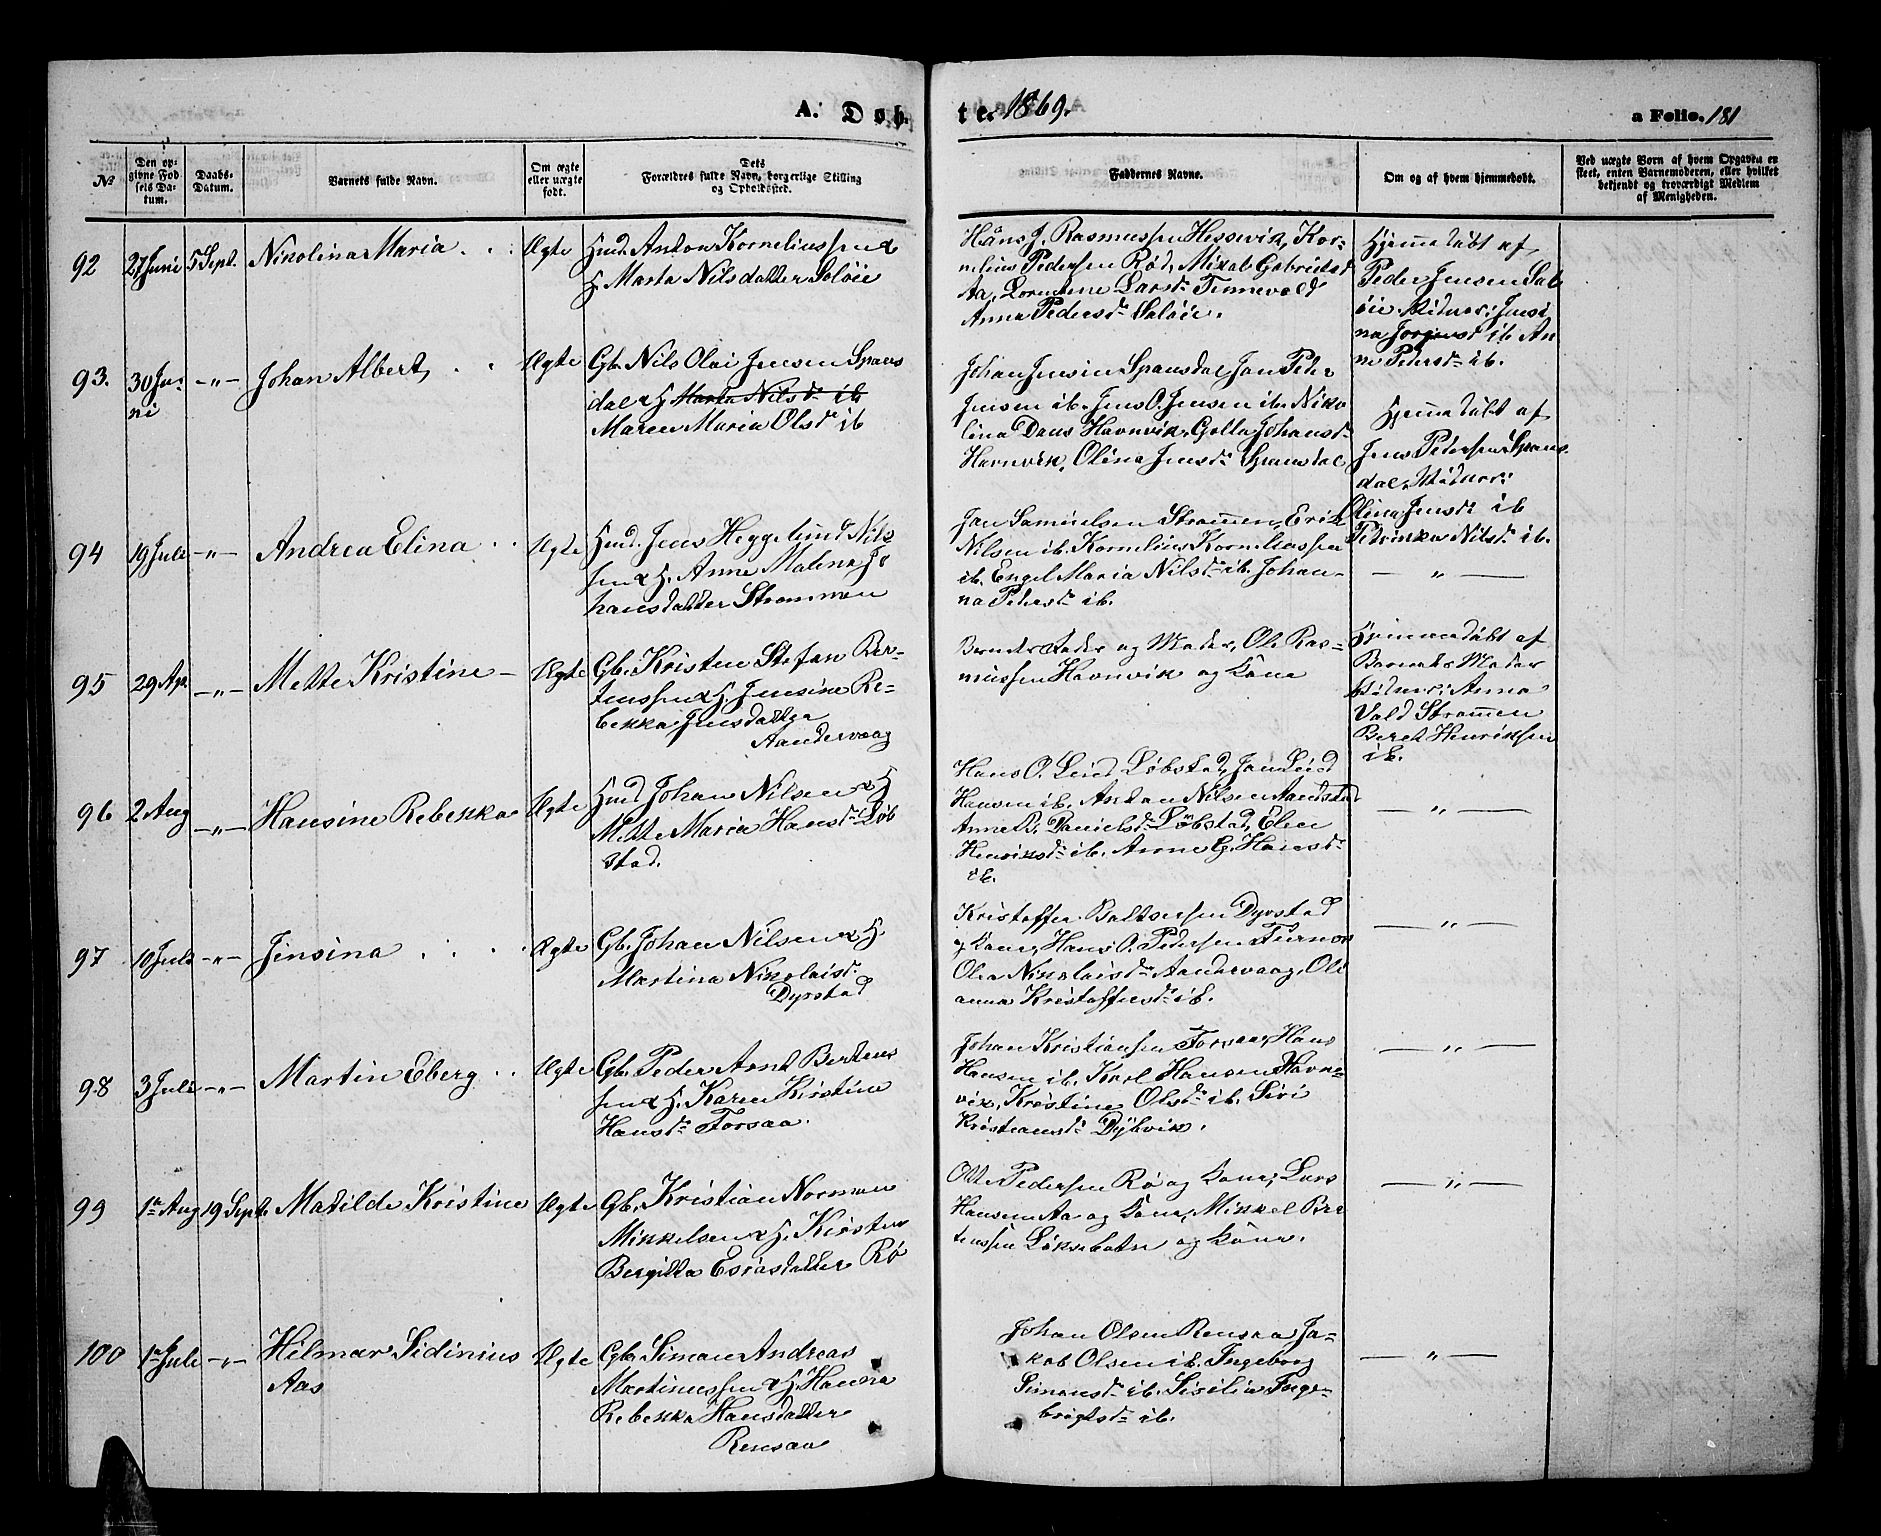 A. Døb
te. 1869.
a Folio. 181
№
Den op-
givne Fød
sels Da-
tum.
Daabs-
Datum.
Barnets fulde Navn.
Om ægte
eller uægte
født.
Dets
Forældres fulde Navn, borgerlige Stilling
og Opholdssted.
Faddernes Navne.
Om og af hvem hjemmedøbt.
Ved uægte Børn af hvem Opgaven er
skeet, enten Barnemoderen, eller hvilket
bekjendt og troværdigt Medlem
af Menigheden.
92
27 Juni
5 Sept.
Nikolina Maria
Ægte
Hmd. Anton Korneliussen &
H. Marta Nilsdatter Saløie
Hans J. Rasmussen Hessevik, Kor-
nelius Pedersen Rød, Mikal Gabrielsd
Aa, Lorentine Larsd. Tennevold
Anna Pedersd. Saløie.
Hjemmedøbt af
Peder Jensen Sal
øie Vidner: Jensi
na Jørgensd ib. An
ne Pedersd. ib.
93.
30 Ju-
ni
-"-
Johan Albert,
Ægte
Gb. Nils Olai Jensen Spans
dal & H. Marta Nilsd. ib
Maren Maria Olsd. ib
Johan Jensen Spansdal Jan Peder
Jensen ib. Jens O. Jensen ib. Niko
lina Dans Havnvik, Golla Johansd.
Havnvik, Olina Jensd. Spansdal
Hjemmedøbt af
Jens Pedersen Spans
dal, Vidner:
Olina Jensd. ib
Petrikka Nilsd. ib.
94
19 Juli
-"-
Andrea Elina
Ægte
Hmd. Jens Heggelund Nils
sen & H. Anne Malena Jo
hansdatter Strømmen
Jan Samuelsen Strømmen, Erik
Nilsen ib. Kornelius Korneliussen
ib. Engel Maria Nilsd. ib. Johan-
na Pedersd. ib.
— " —
95
29 Ap.
-"-
Mette Kristine
Ægte
Gb. Kristen Stefan Ber-
tenssen & H. Jensine Re-
bekka Jensdatter
Aandervaag
Barnets Fader og Moder, Ole Ras-
mussen Havnvik og Kone
Hjemmedøbt af
Barnets Moder
Vidner: Anna
Vald Strømmen
Beret Henriksen
ib.
96
2 Aug
-"-
Hansine Rebekka
Ægte
Hmd. Johan Nilsen & H
Mette Maria Hansd. Løb
stad.
Hans O. Lind Løbstad, Jan Lind
Hansen ib. Antan Nilsen Aandstad
Anne B. Danielsd. Løbstad, Elen
Henriksd. ib. Anne G. Hansd.
ib.
— " —
97
10 Juli
-"-
Jensina
Ægte
Gb. Johan Nilsen & H.
Martina Nikolaisd.
Dyrstad
Kristoffer Baltsersen Dyrstad
og Kone, Hans O. Pedersen
Olea Nikolaisd. Aandervaag, Oli
anna Kristoffersd. ib.
— " —
98
3 Juli
-"-
Martin Eberg
Ægte
Gb. Peder Arnt Bertens
sen & H. Karen Kirstine
Hansd. Forsaa.
Johan Kristiansen Forsaa, Hans
Hansen ib. Karl Hansen Havn-
vik, Kristine Olsd. ib. Siri
Kristiansd. Dybvik.
— " —
99
1ste Aug
19 Sept.
Matilde Kristine
Ægte
Gb. Kristian Norman
Mikkelsen & H. Kirsten
Bergitta Esiasdatter Rø
Otte Pedersen Rø og Kone, Lars
Hansen Aa og Kone, Mikkel Ber
tenssen Løksebotn og Kone.
— " —
100
1ste Juli
-"-
Hilmar Sidinius
Aas
Ægte
Gb. Simon Andreas
Martinussen & H. Hanna
Rebekka Hansdatter
Rensaa
Johan Olsen Rensaa Ja-
kob Olsen ib. Ingeborg
Simonsd. ib. Sisilia Inge-
brigtsd. ib.
— " —